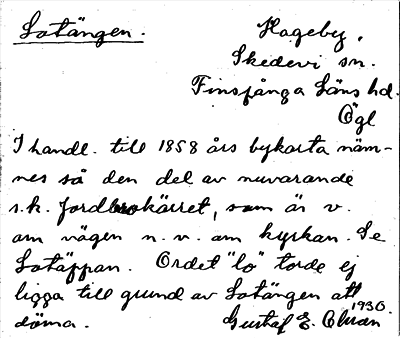 Sotängen.
Hageby,
Skedevi sn.
Finspånga Läns hd.
Ögl
I handl. till 1858 års bykarta näm-
nes så den del av nuvarande
s.k. fordbrokärret, som är v.
om vägen n.v. om kyrkan. Se
Sotäppan. Ordet "so" torde ej
ligga till grund av Sotängen att
döma.
1930.
Gustaf E.